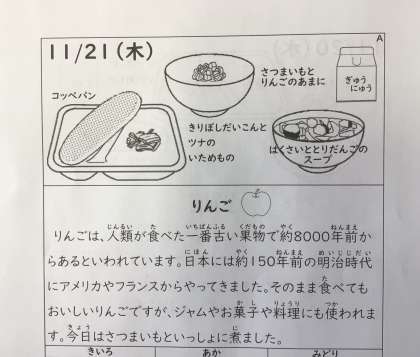 A
11/21(木)
さつまいもと
りんごのあまに
ぎゅう
にゅう
コッペパン
きりぼしだいこんと
ツナの
いためもの
はくさいととりだんごの
スープ
りんご
りんごは、人類が食べた一番古い果物で約8000年前か
らあるといわれています。日本には約150年前の明治時代
にアメリカやフランスからやってきました。そのまま食べても
おいしいりんごですが、ジャムやお菓子や料理にも使われま
す。今日はさつまいもといっしょに煮ました。
きいろ あか みどり